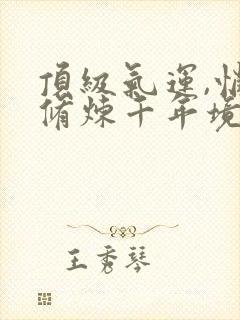 頂級氣運,悄
脩煉千年境
王秀琴